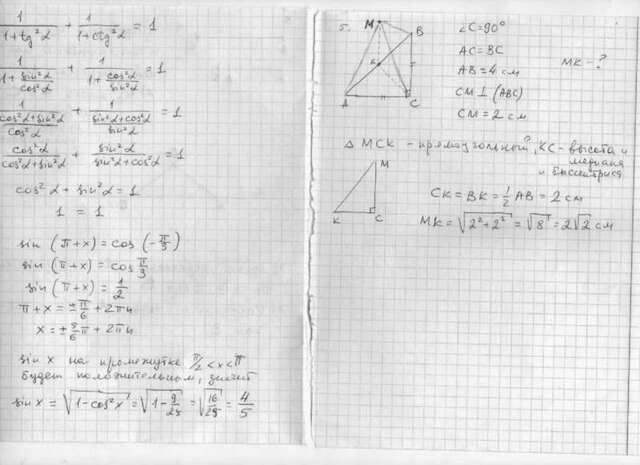 1/(1+tg²α) + 1/(1+ctg²α) = 1
1/(1+sin²α/cos²α) + 1/(1+cos²α/sin²α) = 1
1/((cos²α+sin²α)/cos²α) + 1/((sin²α+cos²α)/sin²α) = 1
cos²α/(cos²α+sin²α) + sin²α/(sin²α+cos²α) = 1
cos²α + sin²α = 1
1 = 1
sin (π+x) = cos (-π/3)
sin (π+x) = cos π/3
sin (π+x) = 1/2
π+x = ± π/6 + 2πn
x = ± 5/6 π + 2πn
sin x на промежутке π/2 < x < π
будет положительном, значит
sin x = √(1-cos²x) = √(1-9/25) = √(16/25) = 4/5
5.
M
B
K
A
C
∠C=90°
AC=BC
AB=4 см
CM⊥(ABC)
CM=2 см
MK-?
Δ MCK - прямоугольный, KC-высота и
медиана
и биссектриса
M
K
C
CK=BK=1/2 AB=2 см
MK=√(2²+2²)=√8=2√2 см